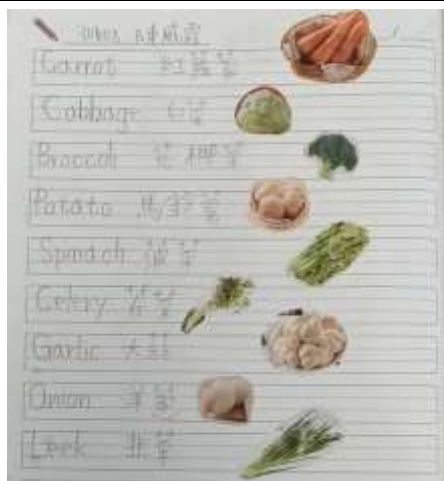 Carrot 红萝卜
Cabbage 白菜
Broccoli 花椰菜
Potato 马铃薯
Spinach 菠菜
Celery 芹菜
Garlic 大蒜
Onion 洋葱
Leek 韭菜